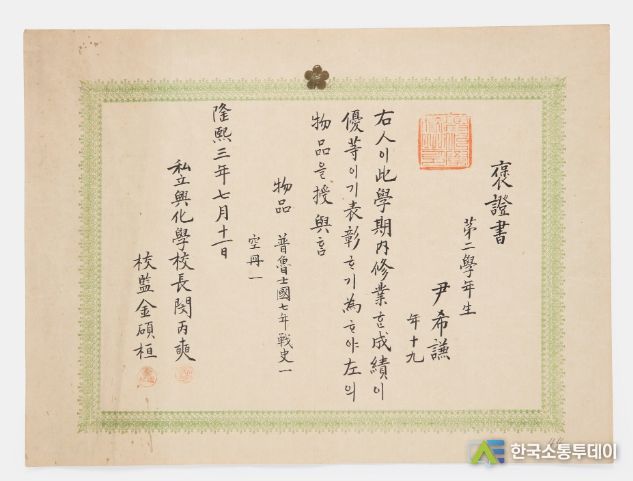 褒證書
第二學年生
尹希謙
年十九
右人이此學期內修業ᄒᆞᆫ成績이
優等이기表彰ᄒᆞ기為ᄒᆞ야左의
物品을授與홈
物品 普魯士國七年戰史一
空冊一
隆熙三年七月十一日
私立興化學校長閔丙奭
校監金碩桓
한국소통투데이